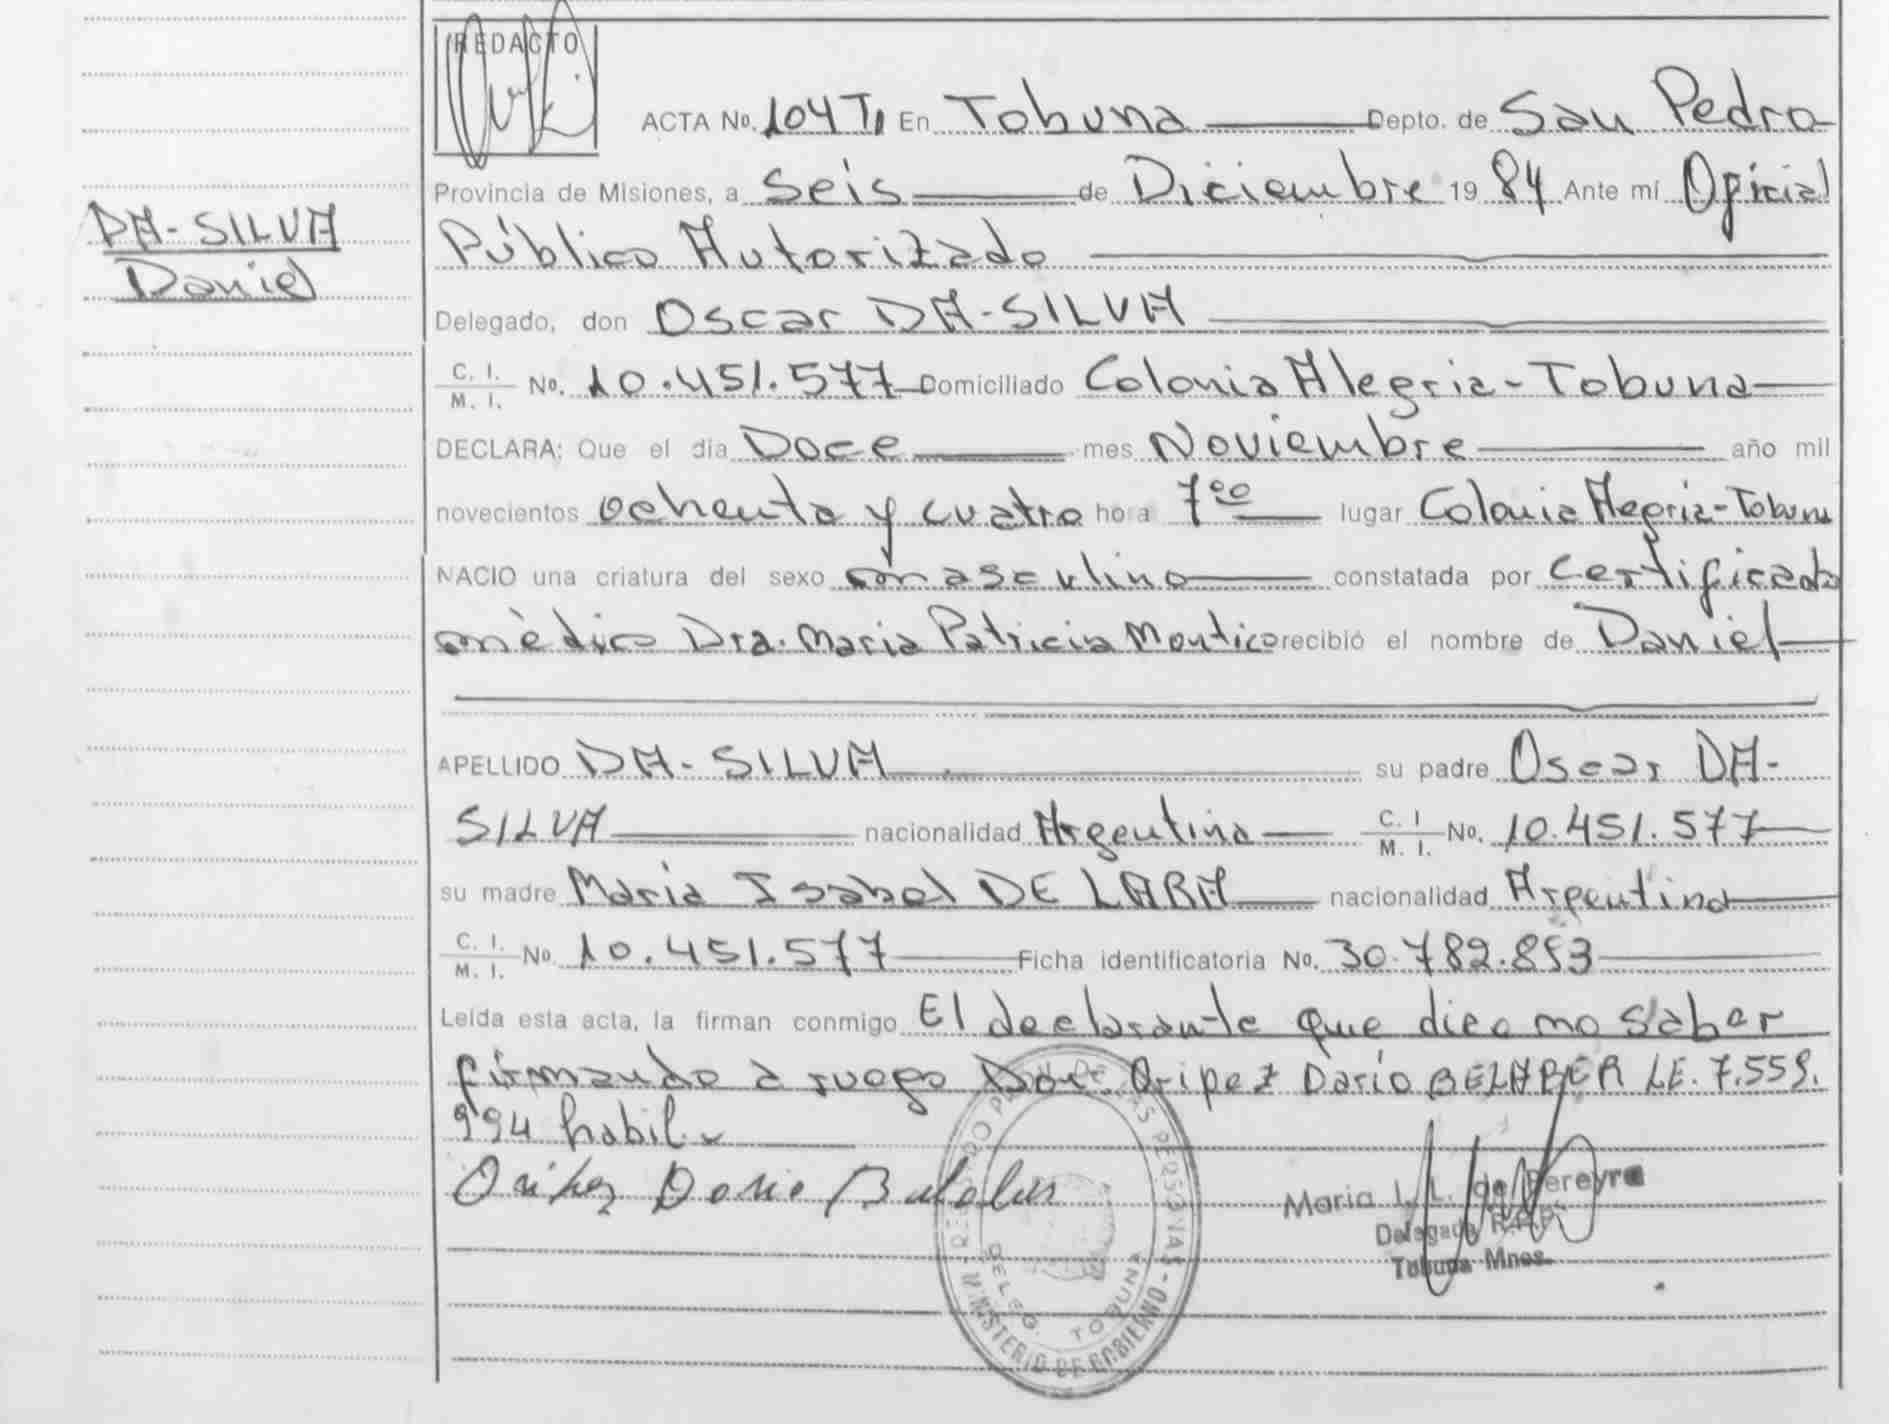 DA-SILVA
Daniel
REDACTO
ACTA No. 104 T, En Tobuna Depto. de San Pedro
Provincia de Misiones, a Seis de Diciembre 19 84 Ante mí Oficial
Público Autorizado
Delegado, don Oscar DA-SILVA
C. I. / M. I. No. 10.451.577 Domiciliado Colonia Alegria-Tobuna
DECLARA: Que el día Doce mes Noviembre año mil
novecientos ochenta y cuatro hora 7 00 lugar Colonia Alegria-Tobuna
NACIO una criatura del sexo masculino constatada por certificado
mèdico Dra. Maria Patricia Montico recibió el nombre de Daniel
APELLIDO DA-SILVA su padre Oscar DA-
SILVA nacionalidad Argentina C. I / M. I. No. 10.451.577
su madre Maria Isabel DE LARA nacionalidad Argentina
C. I. / M. I. No. 10.451.577 Ficha identificatoria No. 30.782.853
Leída esta acta, la firman conmigo El declarante que dice no saber
firmando a ruego Don Oripez Dario BELABER LE. 7.559.
994 habil.
Dario
Maria I. L. de Pereyra
Delegada R.P.P.
Tobuna Mnes.
DELEG. TOBUNA
MINISTERIO DE GOBIERNO